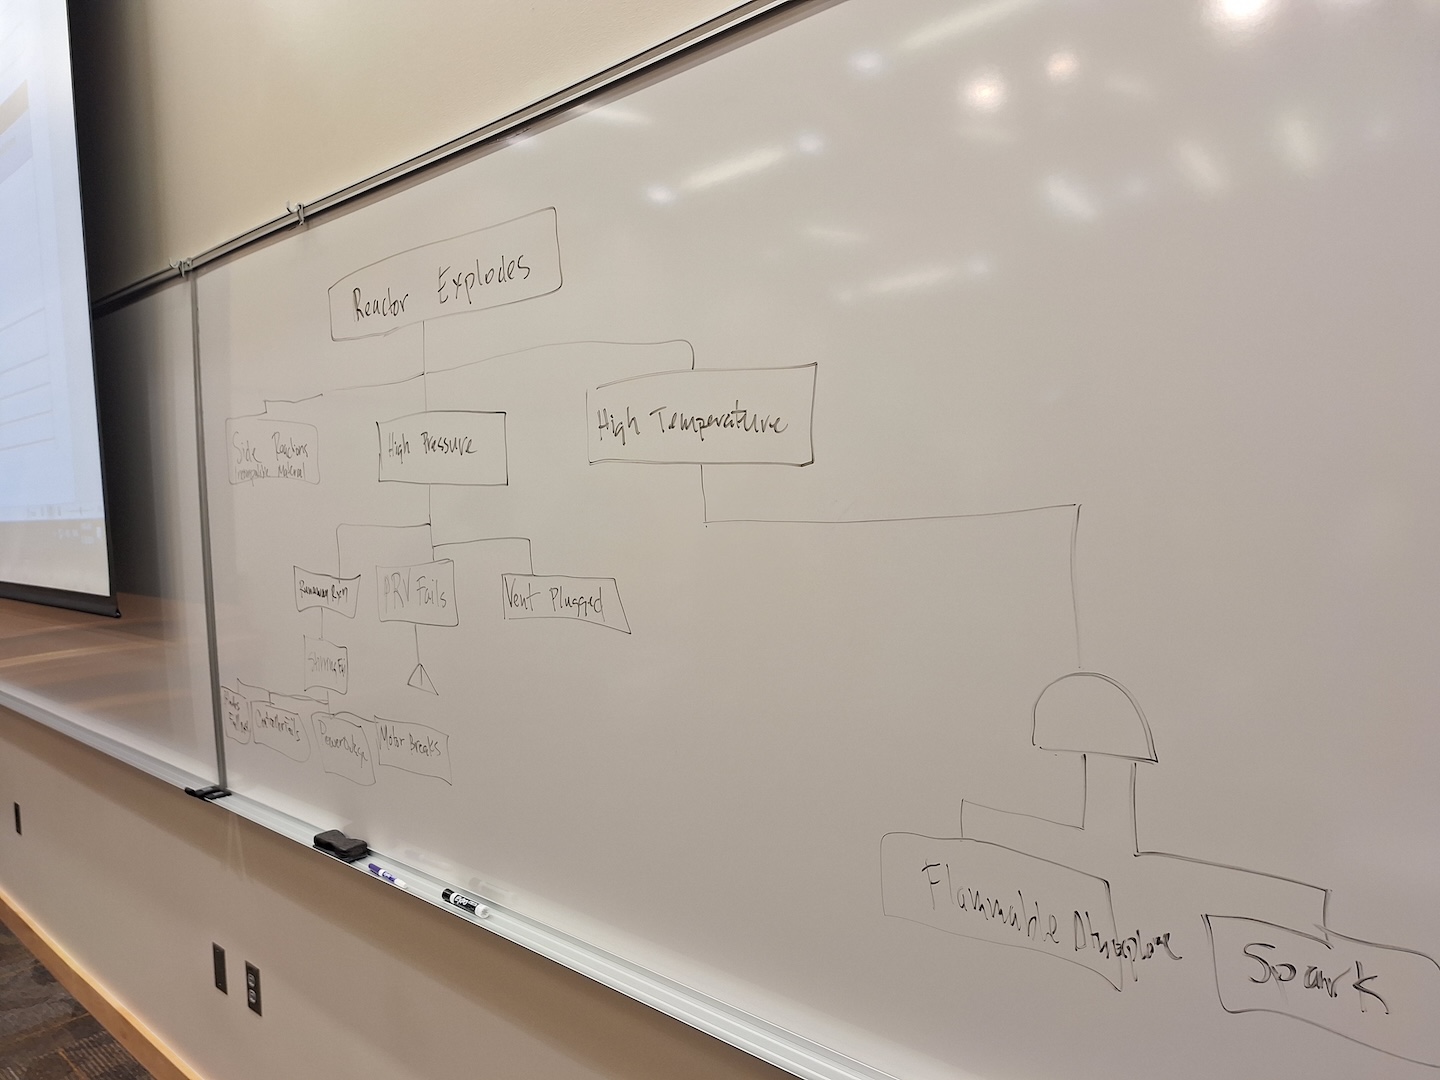 Reactor Explodes
Side Reactions
Incompatible Material
High Pressure
High Temperature
Runaway Rxn
PRV Fails
Vent Plugged
Stirring Fail
Blades
Fall out
Controller Fails
Power Outage
Motor Breaks
Flammable
Spark
EXPO